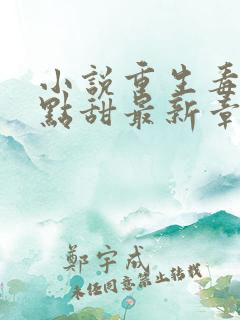 小說重生毒
點甜最新章
鄭宇成
未經同意禁止轉載